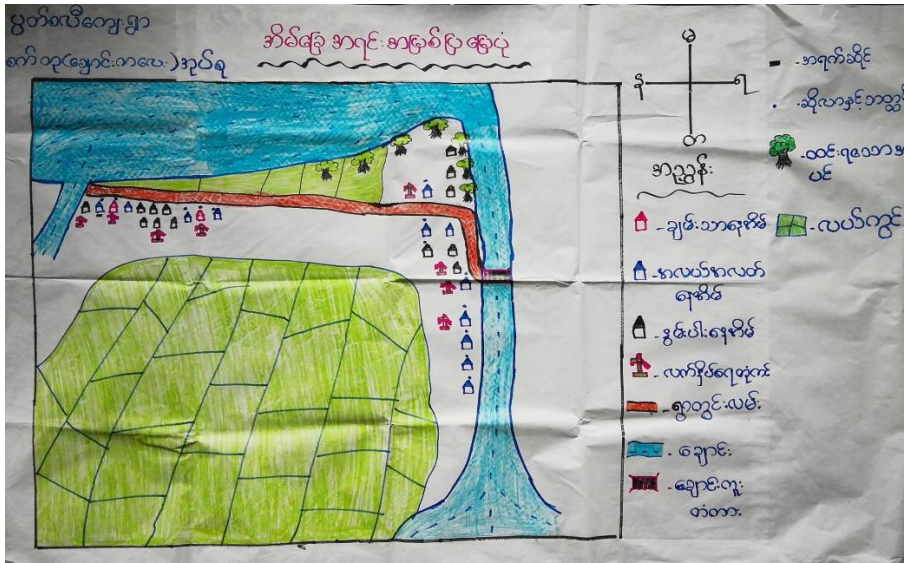 ပွတ်စလီကျေးရွာ
စက်ဘု(ချောင်းကလေး)အုပ်စု
အိမ်ခြေအရင်းအမြစ်ပြမြေပုံ
မ
န
ရ
တ
အညွှန်း
-ချမ်းသာနေအိမ်
-အလယ်အလတ်
နေအိမ်
-နွမ်းပါးနေအိမ်
-လက်နှိပ်ရေတုံကင်
-ရွာတွင်းလမ်း
-ချောင်း
-ချောင်းကူး
တံတား
-အရက်ဆိုင်
-ဆိုလာနှင့်ဘတ္ထရီ
-လယ်ကွင်း